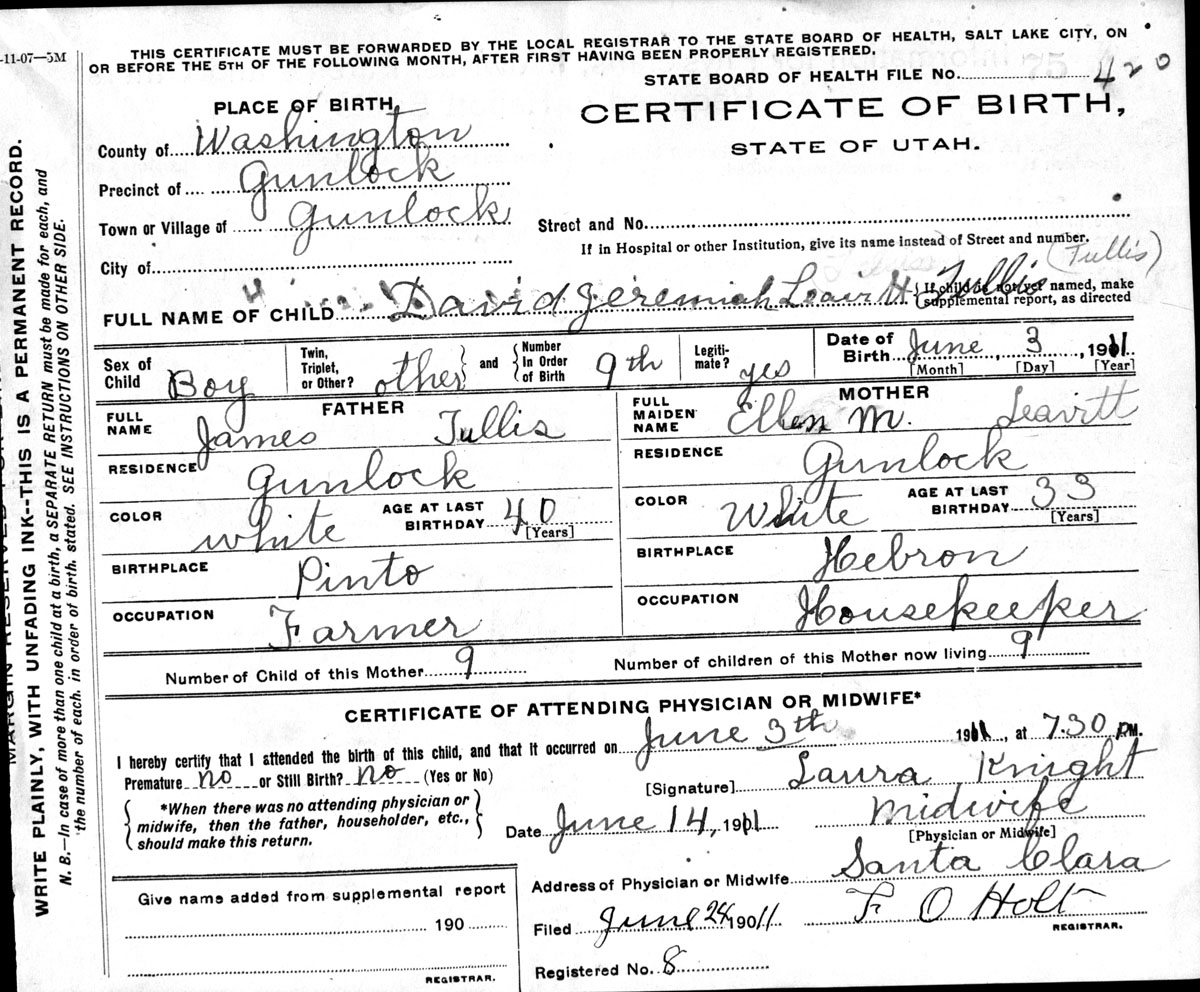 -11-07—5M
THIS CERTIFICATE MUST BE FORWARDED BY THE LOCAL REGISTRAR TO THE STATE BOARD OF HEALTH, SALT LAKE CITY, ON
OR BEFORE THE 5TH OF THE FOLLOWING MONTH, AFTER FIRST HAVING BEEN PROPERLY REGISTERED.
STATE BOARD OF HEALTH FILE No. 420
PLACE OF BIRTH,
CERTIFICATE OF BIRTH,
STATE OF UTAH.
County of Washington
Precinct of Gunlock
Town or Village of Gunlock
Street and No.
If in Hospital or other Institution, give its name instead of Street and number.
City of
(Tullis)
FULL NAME OF CHILD David Jeremiah Leavitt Tullis {If child is not yet named, make
supplemental report, as directed
Sex of Child Boy
Twin, Triplet, or Other? other} and {Number In Order of Birth 9th
Legiti-mate? yes
Date of Birth June, 3, 1911
[Month] [Day] [Year]
FATHER
FULL NAME James Tullis
RESIDENCE Gunlock
COLOR white AGE AT LAST BIRTHDAY 40 [Years]
BIRTHPLACE Pinto
OCCUPATION Farmer
MOTHER
FULL MAIDEN NAME Ellen M. Leavitt
RESIDENCE Gunlock
COLOR White AGE AT LAST BIRTHDAY 33 [Years]
BIRTHPLACE Hebron
OCCUPATION Housekeeper
Number of Child of this Mother 9 Number of children of this Mother now living 9
CERTIFICATE OF ATTENDING PHYSICIAN OR MIDWIFE*
I hereby certify that I attended the birth of this child, and that it occurred on June 3th 1911, at 7.30 PM.
Premature no or Still Birth? no (Yes or No)
[Signature] Laura Knight
{*When there was no attending physician or
midwife, then the father, householder, etc.,
should make this return.}
Date June 14, 1911 Midwife
[Physician or Midwife]
Address of Physician or Midwife Santa Clara
Give name added from supplemental report
190
REGISTRAR.
Filed June 24 1911 F O Holt
REGISTRAR.
Registered No. 8
WRITE PLAINLY, WITH UNFADING INK--THIS IS A PERMANENT RECORD.
N. B.—In case of more than one child at a birth, a SEPARATE RETURN must be made for each, and
the number of each, in order of birth, stated. SEE INSTRUCTIONS ON OTHER SIDE.